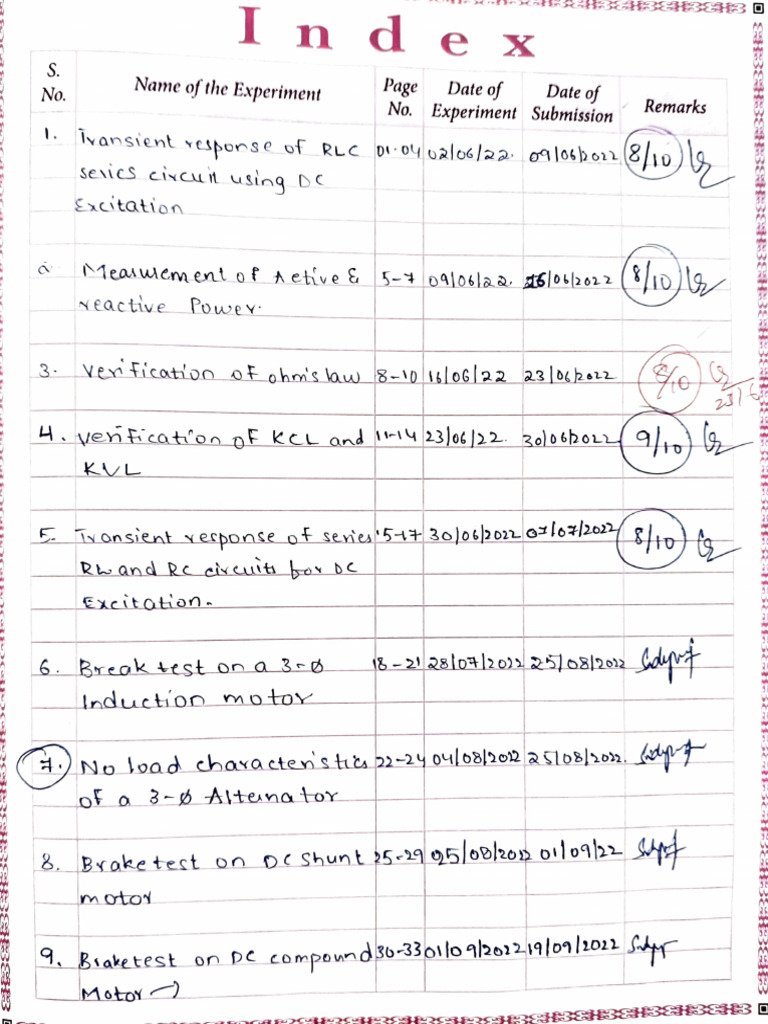 Index
S. No. Name of the Experiment Page No. Date of Experiment Date of Submission Remarks
1. Transient response of RLC 01-04 02/06/22. 09/06/2022 8/10
series circuit using DC
Excitation
2. Measurement of Active & 5-7 09/06/22. 16/06/2022 8/10
reactive Power.
3. Verification of ohm's law 8-10 16/06/22 23/06/2022 8/10
23/6
4. Verification of KCL and 11-14 23/06/22. 30/06/2022 9/10
KVL
5. Transient response of series 15-17 30/06/2022 07/07/2022 8/10
RL and RC circuits for DC
Excitation.
6. Break test on a 3-ø 18-21 28/07/2022 25/08/2022
Induction motor
7. No load characteristics 22-24 04/08/2022 25/08/2022.
of a 3-ø Alternator
8. Brake test on DC Shunt 25-29 25/08/2022 01/09/22
motor
9. Brake test on DC compound 30-33 01/09/2022 19/09/2022
Motor